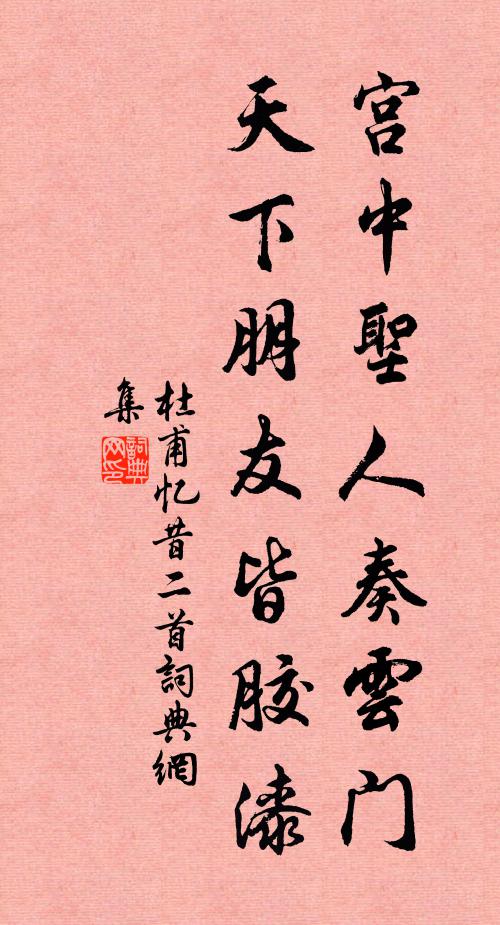 宮中聖人奏雲门
天下朋友皆胶漆
杜甫忆昔二首詞典網
集
詞典网印